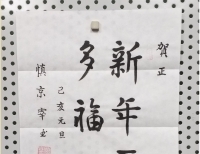 贺正
新年
多福
己亥元旦
慎京宰